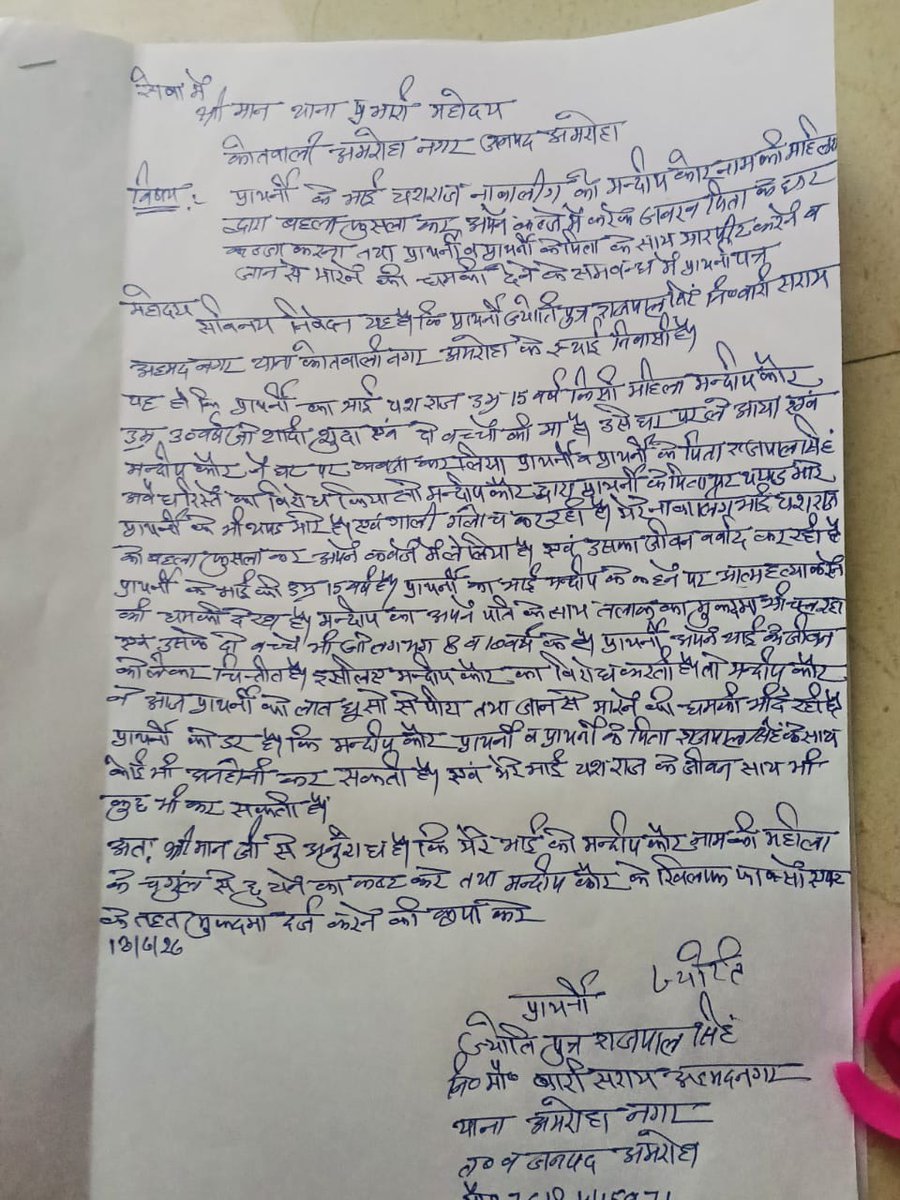 सेवा में
श्री मान थाना प्रभारी महोदय
कोतवाली अमरोहा नगर जनपद अमरोहा
विषय:- प्रार्थनी के भाई यशराज नाबालीग को मन्दीप कौर नाम की महिला
द्वारा बहला फुसला कर अपने कब्जे में करके जबरन पिता के घर
कब्जा करना तथा प्रार्थनी व प्रार्थनी के पिता के साथ मारपीट करने व
जान से मारने की धमकी देने के सम्बन्ध में प्रार्थना पत्र
महोदय
सविनय निवेदन यह है कि प्रार्थनी ज्योति पुत्र राजपाल सिहं नि० बारी सराय
अहमद नगर थाना कोतवाली नगर अमरोहा के स्थाई निवासी है।
यह है कि प्रार्थनी का भाई यशराज उम्र 15 वर्ष किसी महिला मन्दीप कौर
उम्र 30 वर्ष जो शादी शुदा एवं दो बच्चों की मां है। उसे घर पर ले आया एवं
मन्दीप कौर ने घर पर कब्जा कर लिया प्रार्थनी व प्रार्थनी के पिता राजपाल सिहं
अवैध रिस्ते का विरोध किया तो मन्दीप कौर द्वारा प्रार्थनी के पिता पर थप्पड़ मारे
प्रार्थनी के भी थप्पड मारे है। एवं गाली गलौच कर रही है। मेरे नाबालिग भाई यशराज
को बहला फुसला कर अपने कब्जे में ले लिया है। एवं उसका जीवन बर्बाद कर रही है
प्रार्थनी के भाई की उम्र 15 वर्ष है। प्रार्थनी का भाई मन्दीप के कहने पर आत्महत्या करने
की धमकी दे रखा है। मन्दीप का अपने पति के साथ तलाक का मुकदमा भी चल रहा
एवं उसके दो बच्चे भी जो लगभग 8 व 10 वर्ष के है। प्रार्थनी अपने भाई के जीवन
को लेकर चिन्तीत है। इसीलिए मन्दीप कौर का विरोध करती है। तो मन्दीप कौर
ने आज प्रार्थनी को लात घुसो से पीटा तथा जान से मारने की धमकी भी दे रही है
प्रार्थनी को डर है। कि मन्दीप कौर प्रार्थनी व प्रार्थनी के पिता राजपाल सिहं के साथ
कोई भी अनहोनी कर सकती है। एवं मेरे भाई यशराज के जीवन साथ भी
कुछ भी कर सकती है।
अतः श्री मान जी से अनुरोध है। कि मेरे भाई को मन्दीप कौर नाम की महीला
के चुगुंल से छुडाने का कष्ट करे तथा मन्दीप कौर के खिलाफ पाक्सो एक्ट
के तहत मुकदमा दर्ज करने की कृपा करे
ज्योति
प्रार्थनी
ज्योति पुत्र राजपाल सिहं
नि० मौ० बारी सराय अहमदनगर
थाना अमरोहा नगर
त० व जनपद अमरोहा